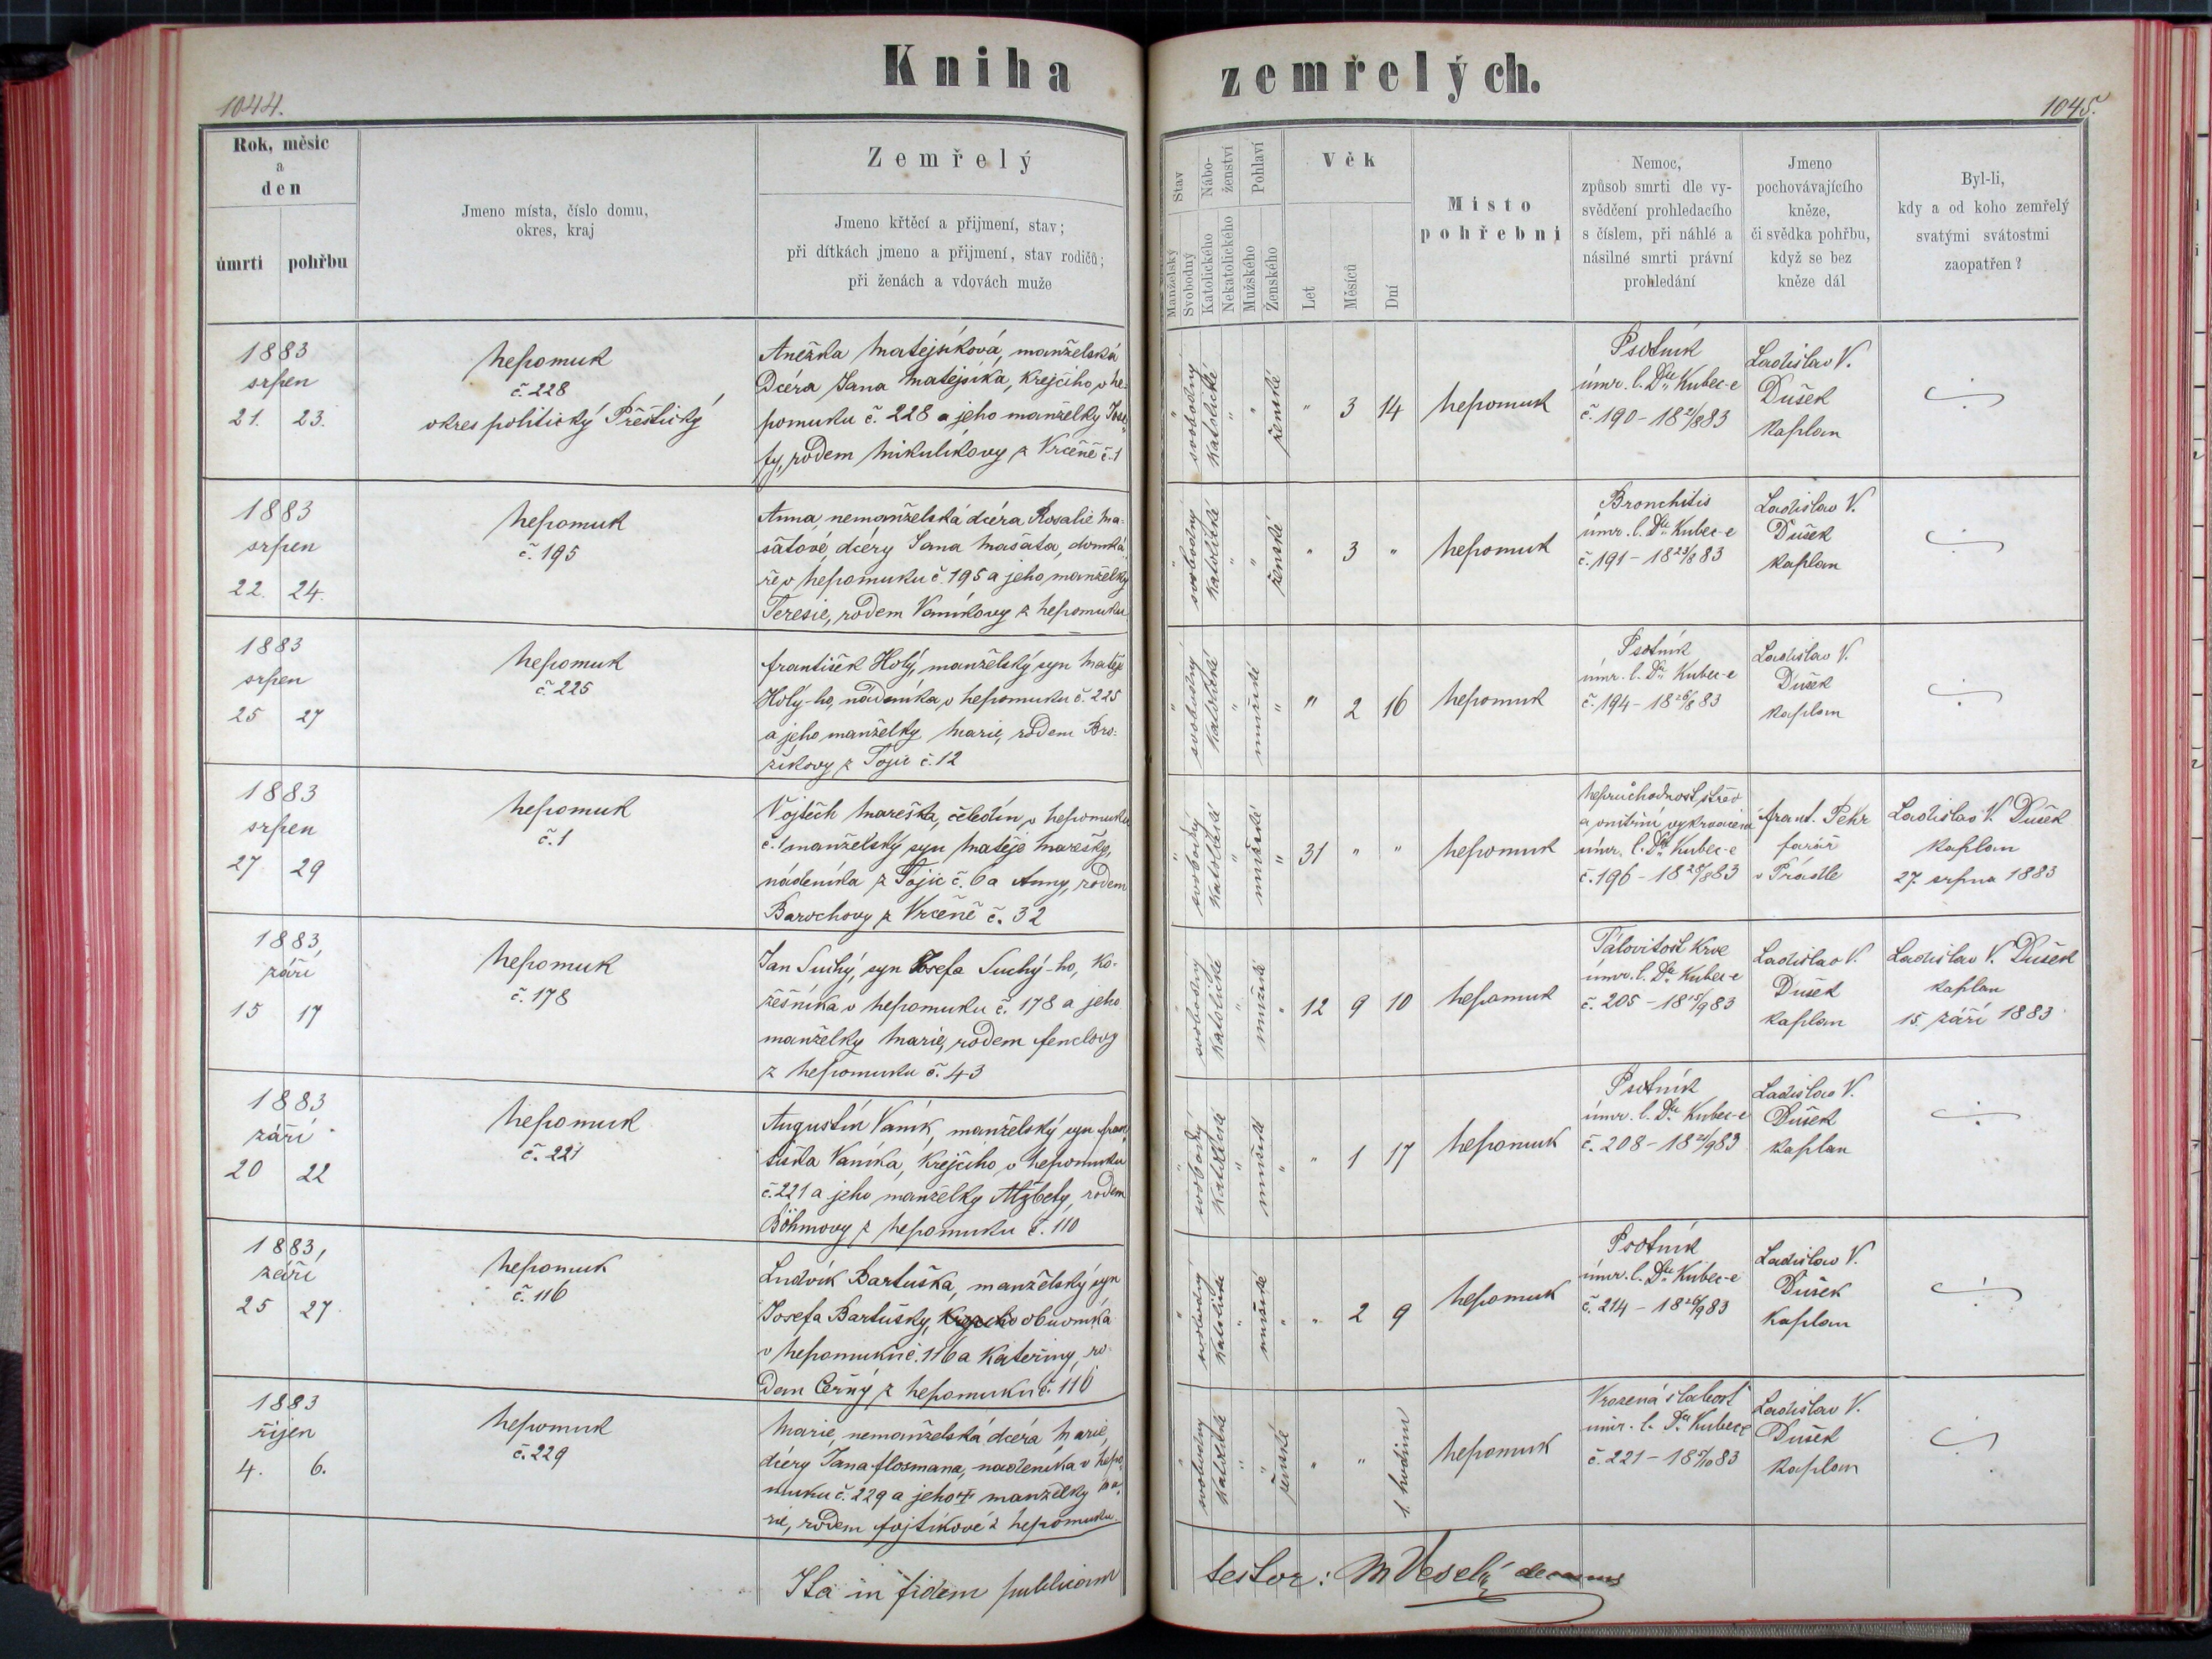 Kniha zemřelých.
1044.
1045.
Rok, měsíc
a
den
úmrtí
pohřbu
Jmeno místa, číslo domu,
okres, kraj
Zemřelý
Jmeno křtěcí a přijmení, stav;
při dítkách jmeno a přijmení, stav rodičů;
při ženách a vdovách muže
Stav
Manželský
Svobodný
Nábo-
ženství
Katolického
Nekatolického
Pohlaví
Mužského
Ženského
Věk
Let
Měsíců
Dní
Místo
pohřební
Nemoc,
způsob smrti dle vy-
svědčení prohledacího
s číslem, při náhlé a
násilné smrti právní
prohledání
Jmeno
pochovávajícího
kněze,
či svědka pohřbu,
když se bez
kněze dál
Byl-li,
kdy a od koho zemřelý
svatými svátostmi
zaopatřen?
1883
srpen
21. 23.
Nepomuk
č. 228
okres politický Přeštický
Anežka Matějsíková, manželská
Dcéra Jana Matějsíka, Krejčího v Ne-
pomuku č. 228 a jeho manželky Jose-
fy, rodem Mikulíkovy z Vrčeně č. 1
" svobodný Katolické " " ženské " 3 14
Nepomuk
Psotník
úmr. l. Dra Kubec-e
č. 190 - 18 21/8 83
Ladislav V.
Dušek
Kaplan
1883
srpen
22. 24.
Nepomuk
č. 195
Anna, nemanželská dcéra Rosalie Ma-
šátové, dcéry Jana Mašáta, domká-
ře v Nepomuku č. 195 a jeho manželky
Teresie, rodem Vaníkovy z Nepomuku
" svobodný Katolické " " ženské " 3 "
Nepomuk
Bronchitis
úmr. l. Dra Kubec-e
č. 191 - 18 23/8 83
Ladislav V.
Dušek
Kaplan
1883
srpen
25 27
Nepomuk
č. 225
František Holý, manželský syn Matěje
Holý-ho, nádeníka v Nepomuku č. 225
a jeho manželky Marie, rodem Bro-
žíkovy z Tojic č. 12
" svobodný Katolické " mužské " " 2 16
Nepomuk
Psotník
úmr. l. Dra Kubec-e
č. 194 - 18 26/8 83
Ladislav V.
Dušek
Kaplan
1883
srpen
27 29
Nepomuk
č. 1
Vojtěch Mareška, čeledín v Nepomuku
č. 1 manželský syn Matěje Marešky,
nádeníka z Tojic č. 6 a Anny, rodem
Barochovy z Vrčeně č. 32
" svobodný Katolické " mužské " 31 " "
Nepomuk
Neprůchodnost střev
a vnitřní vykrvácení
úmr. l. Dra Kubec-e
č. 196 - 18 28/8 83
Frant. Pekr
farář
v Prádle
Ladislav V. Dušek
Kaplan
27. srpna 1883
1883,
září
15 17
Nepomuk
č. 178
Jan Suchý, syn Josefa Suchý-ho, Ko-
žešníka v Nepomuku č. 178 a jeho
manželky Marie, rodem Fenclovy
z Nepomuku č. 43
" svobodný Katolické " mužské " 12 9 10
Nepomuk
Tálovitost Krve
úmr. l. Dra Kubec-e
č. 205 - 18 15/9 83
Ladislav V.
Dušek
Kaplan
Ladislav V. Dušek
Kaplan
15. září 1883
1883
září
20 22
Nepomuk
č. 221
Augustin Vaník, manželský syn Fran-
tiška Vaníka, Krejčího v Nepomuku
č. 221 a jeho manželky Alžběty, rodem
Böhmovy z Nepomuku č. 110
" svobodný Katolické " mužské " " 1 17
Nepomuk
Psotník
úmr. l. Dra Kubec-e
č. 208 - 18 21/9 83
Ladislav V.
Dušek
Kaplan
1883,
září
25 27
Nepomuk
č. 116
Ludvík Bartuška, manželský syn
Josefa Bartušky, Krejčího obuvníka
v Nepomuku č. 116 a Kateřiny, ro-
dem Černý z Nepomuku č. 116
" svobodný Katolické " mužské " " 2 9
Nepomuk
Psotník
úmr. l. Dra Kubec-e
č. 214 - 18 26/9 83
Ladislav V.
Dušek
Kaplan
1883
říjen
4. 6.
Nepomuk
č. 229
Marie, nemanželská dcéra Marie,
dcéry Jana Flosmana, nádeníka v Nepo-
muku č. 229 a jeho manželky Ma-
rie, rodem Fojtíkové z Nepomuku.
" svobodný Katolické " " ženské " " 1. hodinu
Nepomuk
Vrozená slabost
úmr. l. Dra Kubec-e
č. 221 - 18 5/10 83
Ladislav V.
Dušek
Kaplan
Ita in fidem publicam testor: M Veselý decanus